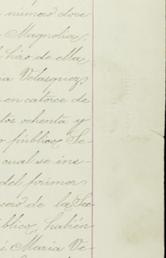 número doce
Magnolia,
hizo de ella
ia Velasquez,
en catorce de
tos ochenta y
público, Se-
cual se ins-
del primer
de la Sec
blico, habién
i Maria Ve-